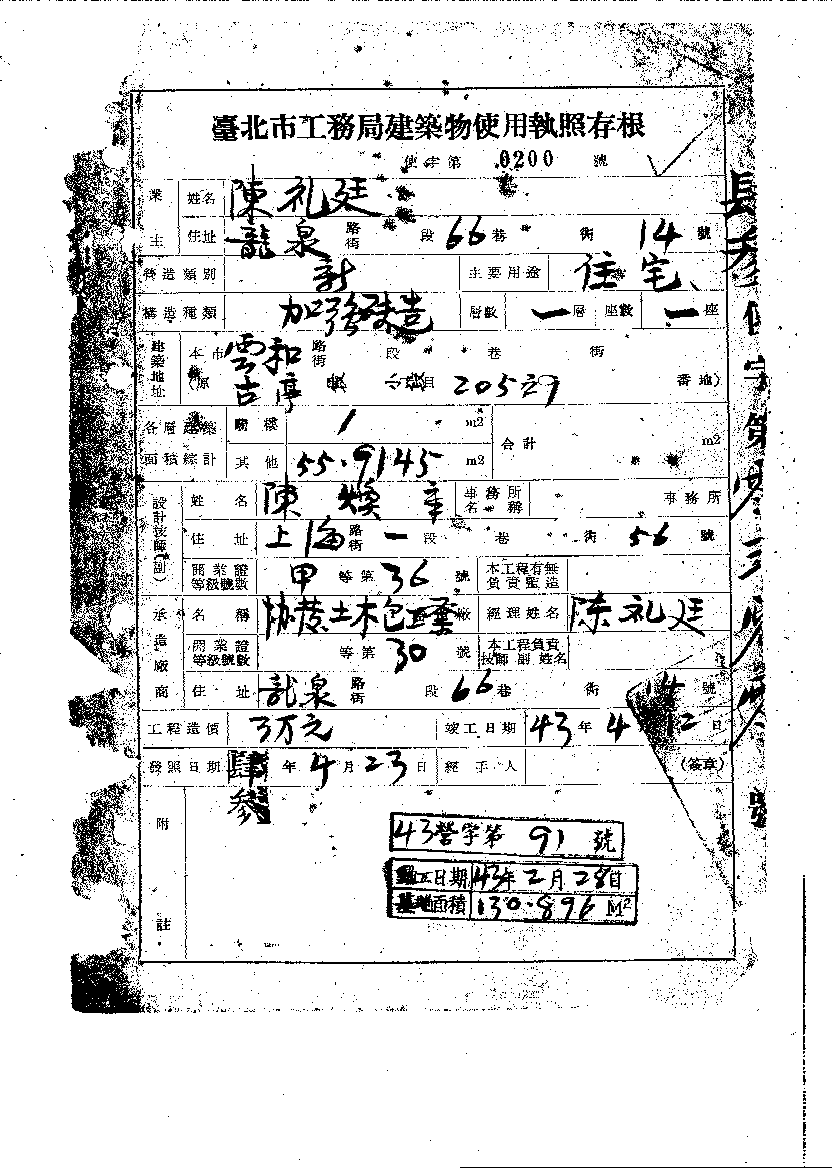 臺北市工務局建築物使用執照存根
使字第 0200 號
業主 姓名 陳礼廷
住址 龍泉 路街 段 66 巷 街 14 號
營造類別 新 主要用途 住宅
構造種類 加強磚造 層數 一層 座數 一座
建築地址 本市 雲和 路街 段 巷 街
(原 古亭 205 番地)
各層建築面積綜計 騎樓 1 m2 合計 m2
其他 55.9145 m2
設計技師(副) 姓名 陳煥 事務所名稱 事務所
住址 上海 路街 一段 巷 街 56 號
開業證等級號數 甲 等第 36 號 本工程有無負責監造
承造廠商 名稱 土木包 廠 經理姓名 陳礼廷
開業證等級號數 等第 30 號 本工程負責技師 副 姓名
住址 龍泉 路街 段 66 巷 街 14 號
工程造價 3万元 竣工日期 43年 4 12日
發照日期 肆參 年 4月 23日 經手人 (簽章)
附註
43營字第 91 號
日期 43年2月28日
面積 130.896 M2
使字第
號